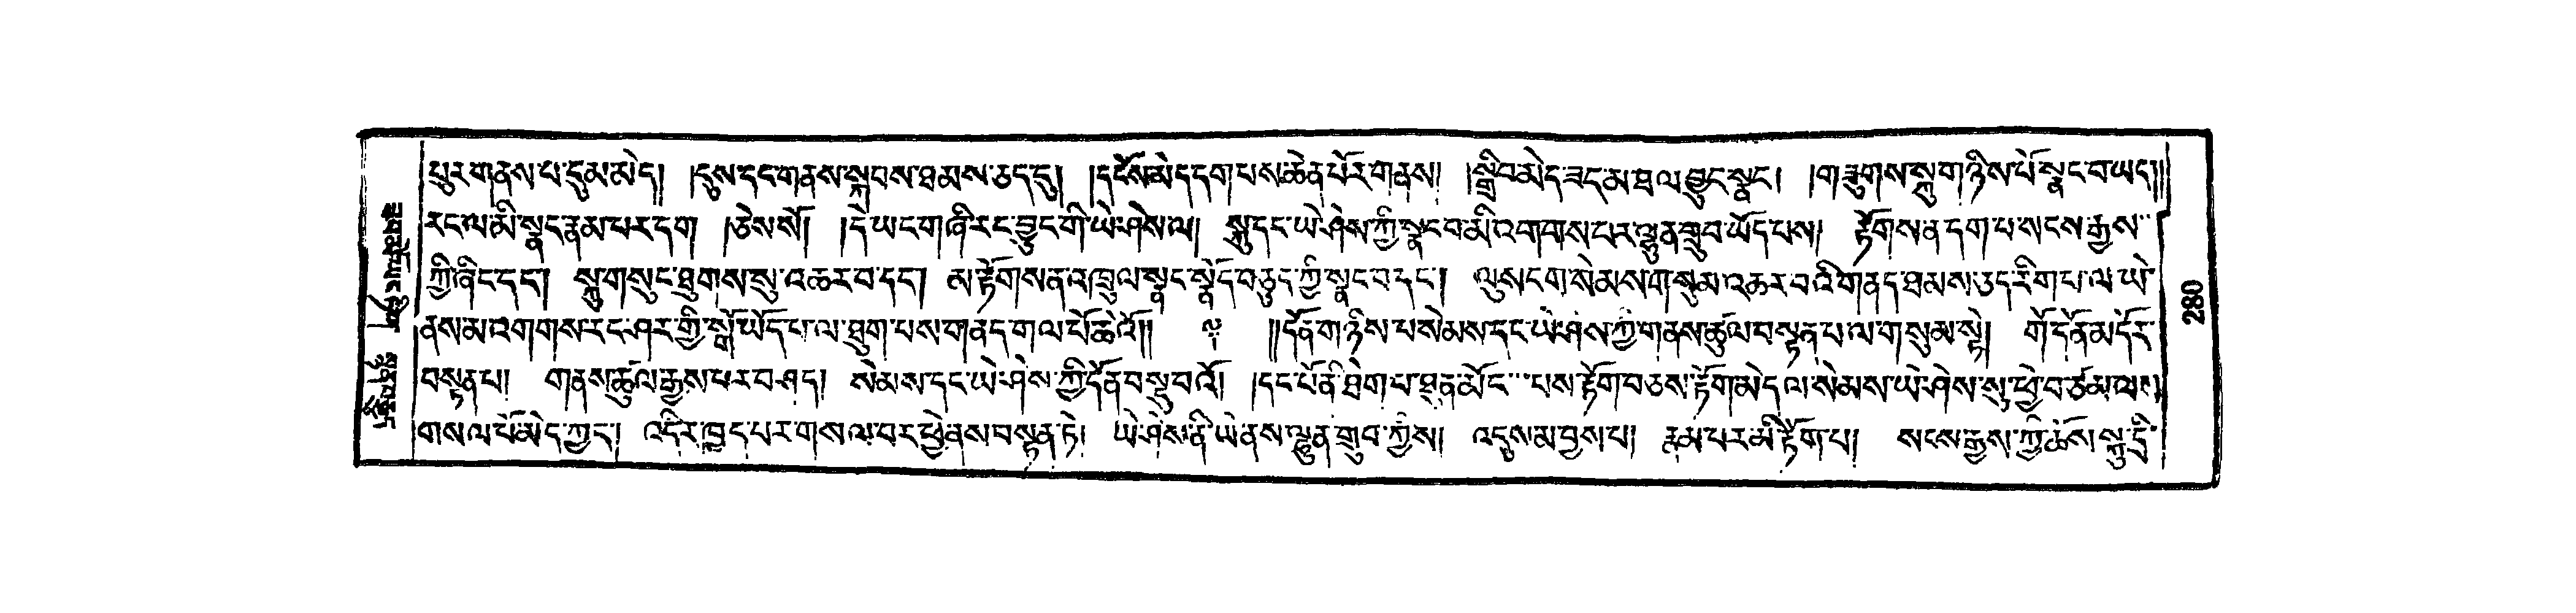 པུར་གནས་པ་དུམ་མེད། །དུས་དང་གནས་སྐབས་ཐམས་ཅད་དུ། །དངོས་མེད་དག་པས་ཆེན་པོར་གནས། །སྒྲིབ་མེད་ཟད་མ་ཐལ་བྱུང་སྣང་། །གཟུགས་སྐུ་གཉིས་པོ་སྣང་བ་ཡང་།།
རང་ལ་མི་སྣང་རྣམ་པར་དག །ཅེས་སོ། །དེ་ཡང་གཞི་རང་བྱུང་གི་ཡེ་ཤེས་ལ། སྐུ་དང་ཡེ་ཤེས་ཀྱི་སྣང་བ་མི་འགགས་པར་ལྷུན་གྲུབ་ཡོད་པས། རྟོགས་ན་དག་པ་སངས་རྒྱས་
ཀྱི་ཞིང་དང་། སྐུ་གསུང་ཐུགས་སུ་འཆར་བ་དང་། མ་རྟོགས་ན་འཁྲུལ་སྣང་སྣོད་བཅུད་ཀྱི་སྣང་བ་དང་། ལུས་ངག་སེམས་གསུམ་འཆར་བའི་གནད་ཐམས་ཅད་རིག་པ་ལ་ཡེ་
ནས་མ་འགགས་རང་ཤར་གྱི་སྒོ་ཡོད་པ་ལ་ཐུག་པས་གནད་གལ་པོ་ཆེའོ།། ༈ །།དོན་གཉིས་པ་སེམས་དང་ཡེ་ཤེས་ཀྱི་གནས་ཚུལ་བསྟན་པ་ལ་གསུམ་སྟེ། གོ་དོན་མདོར་
བསྟན་པ། གནས་ཚུལ་རྒྱས་པར་བཤད། སེམས་དང་ཡེ་ཤེས་ཀྱི་དོན་བསྡུ་བའོ། །དང་པོ་ནི་ཐེག་པ་ཐུན་མོང་པས་རྟོག་བཅས་རྟོག་མེད་ལ་སེམས་ཡེ་ཤེས་སུ་ཕྱེ་བ་ཙམ་ལས།
གསལ་པོ་མེད་ཀྱང་། འདིར་ཁྱད་པར་གསལ་བར་ཕྱེ་ནས་བསྟན་ཏེ། ཡེ་ཤེས་ནི་ཡེ་ནས་ལྷུན་གྲུབ་ཀྱིས། འདུས་མ་བྱས་པ། རྣམ་པར་མི་རྟོག་པ། སངས་རྒྱས་ཀྱི་ཆོས་སྐུ་དྲི་